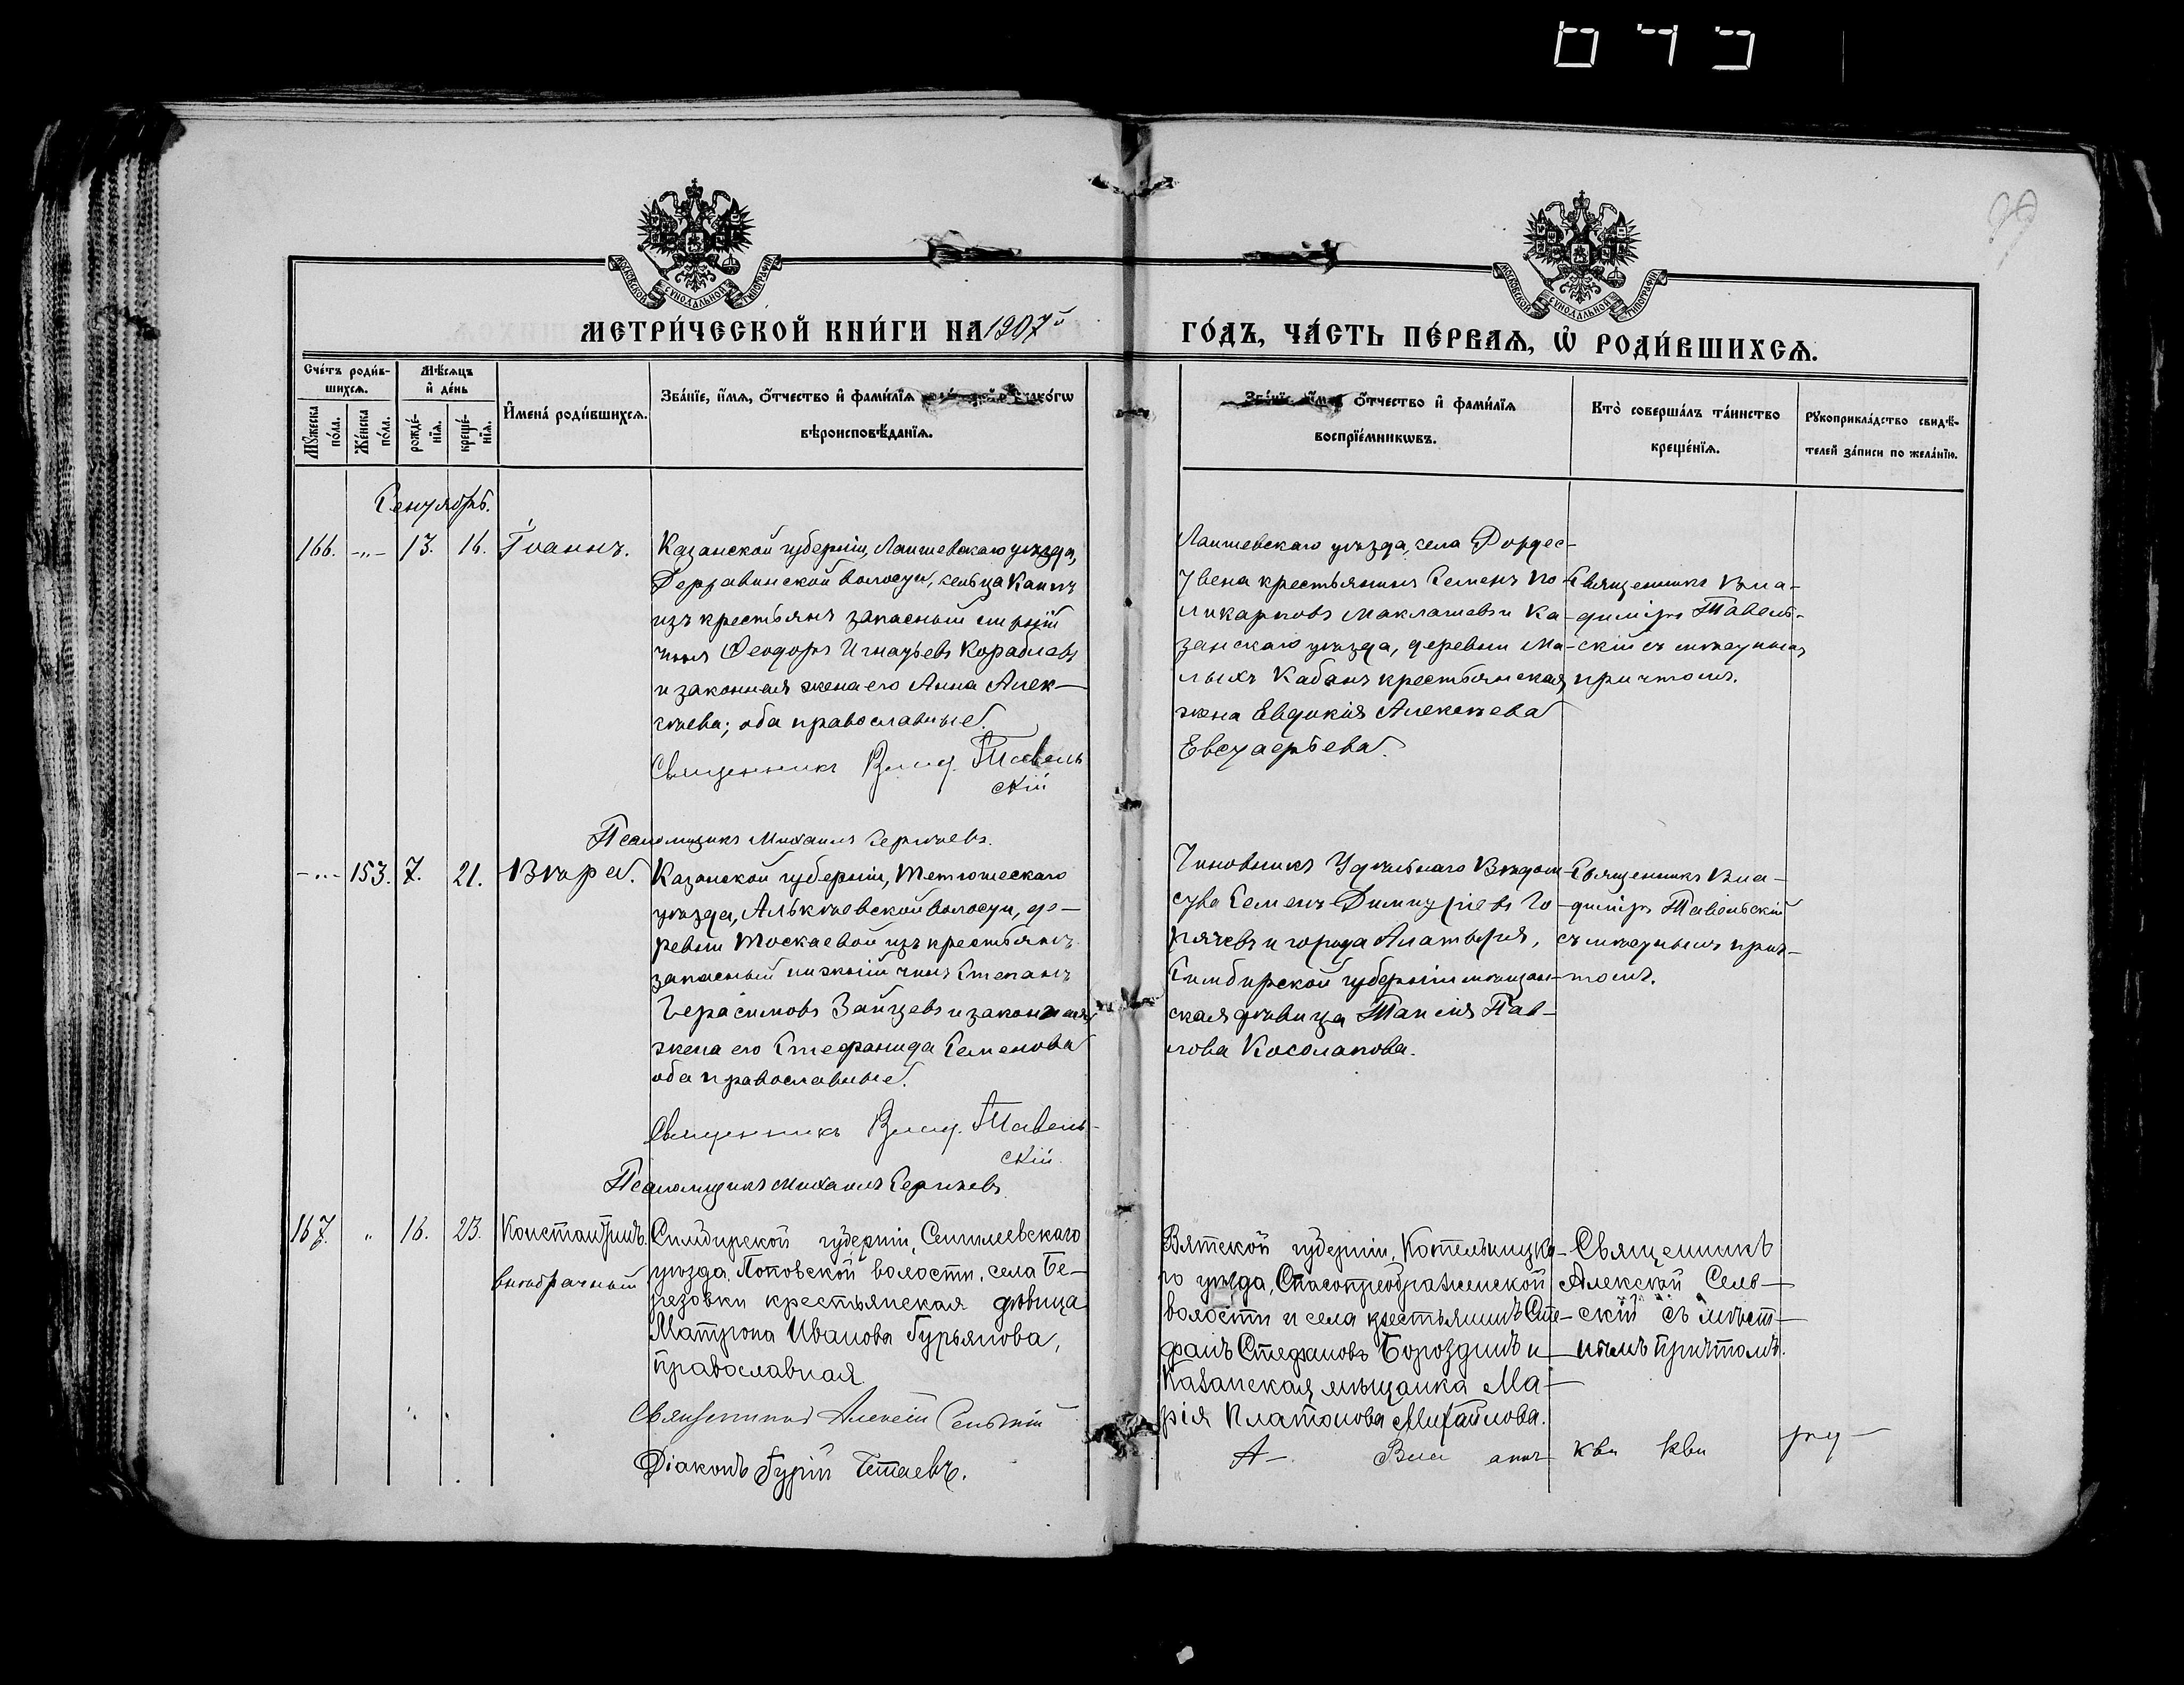 МОСКОВСКОЙ СѴНОДАЛЬНОЙ ТИПОГРАФІИ
МОСКОВСКОЙ СѴНОДАЛЬНОЙ ТИПОГРАФІИ
МЕТРИ́ЧЕСКОЙ КНИ́ГИ НА 1907й
ГО́ДЪ, ЧА́СТЬ ПЕ́РВАѦ, Ѽ РОДИ́ВШИХСѦ.
Сче́тъ роди́в-
шихсѧ.
Мꙋ́жеска по́ла.
Же́нска по́ла.
Мѣ́сѧцъ
и҆ де́нь
рожде́-нїѧ.
креще́-нїѧ.
И҆мена̀ роди́вшихсѧ.
Зва́нїе, и҆́мѧ, ѻ҆́тчество и҆ фами́лїѧ како́гѡ
вѣроисповѣ́данїѧ.
Зва́нїе, и҆́мѧ, ѻ҆́тчество и҆ фами́лїѧ
воспрїе́мникѡвъ.
Кто̀ соверша́лъ та́инство
креще́нїѧ.
Рꙋкоприкла́дство свидѣ́-
телей за́писи по жела́нїю.
Сентябрь.
166. -„- 13. 16. Іоаннъ.
Казанской губерніи, Лаишевскаго уѣзда,
Державинской волости, сельца Каипъ
изъ крестьянъ запасный
Феодоръ Игнатьевъ Кораблевъ
и законная жена его Анна Алек-
сѣева; оба православные.
Священникъ Влад. Тавель
скій
Псаломщикъ Михаилъ Сергѣевъ.
Лаишевскаго уѣзда, села
крестьянинъ Семенъ По-
ликарповъ Маклашевъ и Ка-
занскаго уѣзда, деревни Ма-
лыхъ Кабанъ крестьянская
жена Евдокія Алексѣева
Евстаѳьева.
Священникъ Вла-
диміръ Тавель-
скій съ мѣстнымъ
причтомъ.
-„- 153. 7. 21. Вѣра.
Казанской губерніи, Тетюшескаго
уѣзда, Алькѣевской волости, де-
ревни Москаевой изъ крестьянъ
запасный нижній чинъ Степанъ
Герасимовъ Зайцевъ и законная
жена его Стефанида Семенова
оба православные.
Священникъ Влад. Тавель-
скій.
Псаломщикъ Михаилъ Сергѣевъ
Чиновникъ Удѣльнаго Вѣдом-
ства Семенъ Димитріевъ Го-
рячевъ и города Алатыря,
Симбирской губерніи мѣщан-
ская дѣвица Таисія Пав-
лова Косолапова.
Священникъ Вла-
диміръ Тавельскій
съ мѣстнымъ прич-
томъ.
167. „ 16. 23. Константинъ.
внѣбрачный
Симбирской губерніи, Сенгилеевскаго
уѣзда, Поповской волости, села Бе-
резовки крестьянская дѣвица
Матрона Иванова Гурьянова,
православная.
Священникъ Алексій Сельскій
Діаконъ Гурій
Вятской губерніи, Котельницка-
го уѣзда, Спасопреображенской
волости и села крестьянинъ Сте-
фанъ Стефановъ Бороздинъ и
Казанская мѣщанка Ма-
рія Платонова Михайлова.
Священникъ
Алексѣй Сель-
скій съ мѣст-
нымъ причтомъ.